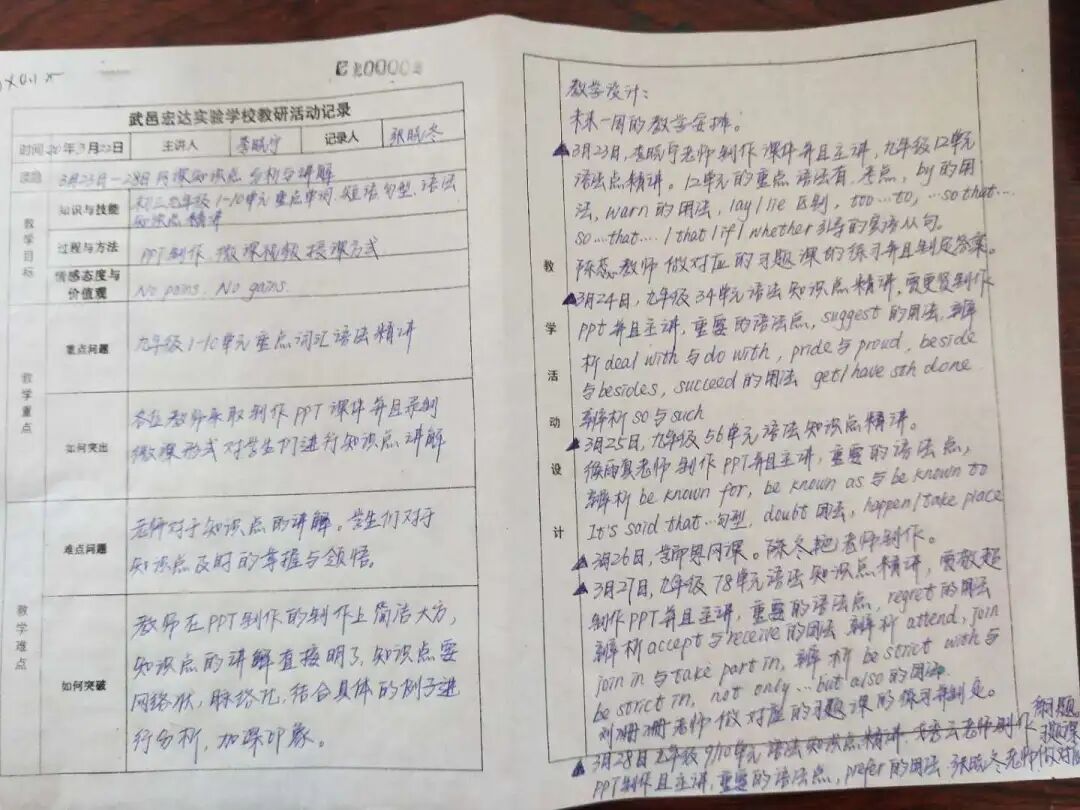 武邑宏达实验学校教研活动记录
时间 20年3月22日 主讲人 李晓宁 记录人 张晓冬
3月23日—28日网课知识点分析与讲解
教学目标
知识与技能
初三九年级1-10单元重点单词、短语句型、语法
知识点精讲
过程与方法
PPT制作,微课视频授课方式
情感态度与
价值观
No pains, No gains.
教学重点
重点问题
九年级1-10单元重点词汇语法精讲
如何突出
各位教师采取制作PPT课件并且录制
微课形式对学生们进行知识点讲解
教学难点
难点问题
老师对于知识点的讲解。学生们对于
知识点及时的掌握与领悟。
如何突破
教师在PPT制作的制作上简洁大方,
知识点的讲解直接明了,知识点要
网络状,脉络化,结合具体的例子进
行分析,加深印象。
教学活动设计
教学设计:
未来一周的教学安排。
▲3月23日,李晓宁老师制作课件并且主讲,九年级12单元
语法点精讲。12单元的重点语法有,考点,by的用
法,warn的用法,lay/lie区别,too…to,…so that…
so…that…/that/if/whether引导的宾语从句。
教师做对应的习题课的练习并且制定答案。
▲3月24日,九年级34单元语法知识点精讲,贾更贤制作
ppt并且主讲,重要的语法点,suggest的用法,辨
析deal with与do with,pride与proud,beside
与besides,succeed的用法 get/have sth done
辨析so与such
▲3月25日,九年级56单元语法知识点精讲。
老师制作PPT并且主讲,重要的语法点,
辨析be known for, be known as与be known to
It's said that…句型,doubt用法,happen/take place
▲3月26日,网课。陈冬艳老师制作。
▲3月27日,九年级78单元语法知识点精讲,贾敬超
制作PPT并且主讲,重要的语法点,regret的用法
辨析accept与receive的用法 辨析attend,join
join in与take part in,辨析be strict with与
be strict in, not only…but also的用法
刘珊珊老师做对应的习题课的练习并制定。
▲3月28日九年级9/10单元语法知识点精讲,老师制作
PPT制作且主讲,重要的语法点,prefer的用法 张晓冬老师做对应